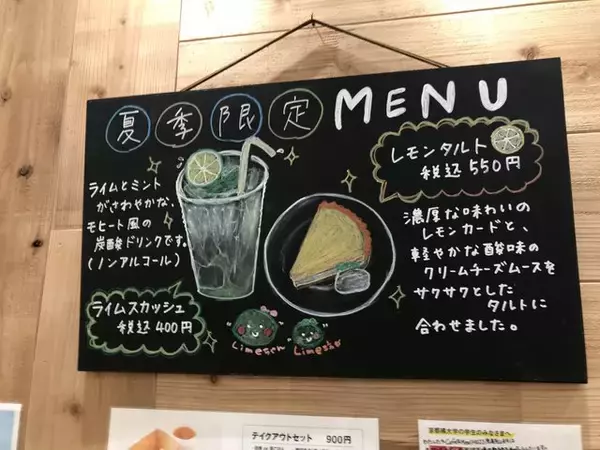 夏季限定 MENU
ライムとミント
がさわやかな、
モヒート風の
炭酸ドリンクです。
(ノンアルコール)
ライムスカッシュ
税込400円
レモンタルト
税込550円
濃厚な味わいの
レモンカードと、
軽やかな酸味の
クリームチーズムースを
サクサクとした
タルトに
合わせました。
テイクアウトセット 900円